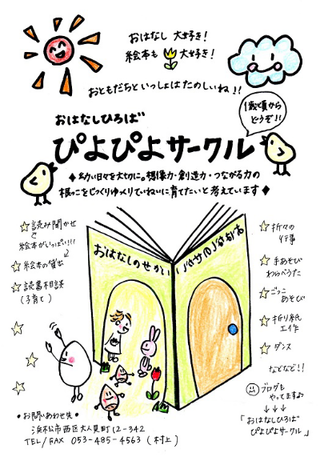 おはなし 大好き！
絵本も 大好き！
おともだちといっしょはたのしいね！！
1歳頃から
どうぞ！！
おはなしひろば
ぴよぴよサークル
♦幼い日々を大切に。想像力・創造力・つながる力の
根っこをじっくりゆっくりていねいに育てたいと考えています♦
☆読み聞かせ
絵本がいっぱい！！
☆絵本の貸出
☆読書相談
（子育て）
おはなしのせかい
☆折々の
行事
☆手あそび
わらべうた
☆ごっこ
あそび
☆折り紙
工作
☆ダンス
などなど！！
ブログも
やってます♪
↓↓↓
「おはなしひろば
ぴよぴよサークル」
●お問いあわせ先●
浜松市西区大人見町12-342
TEL/FAX 053-485-4563（村上）